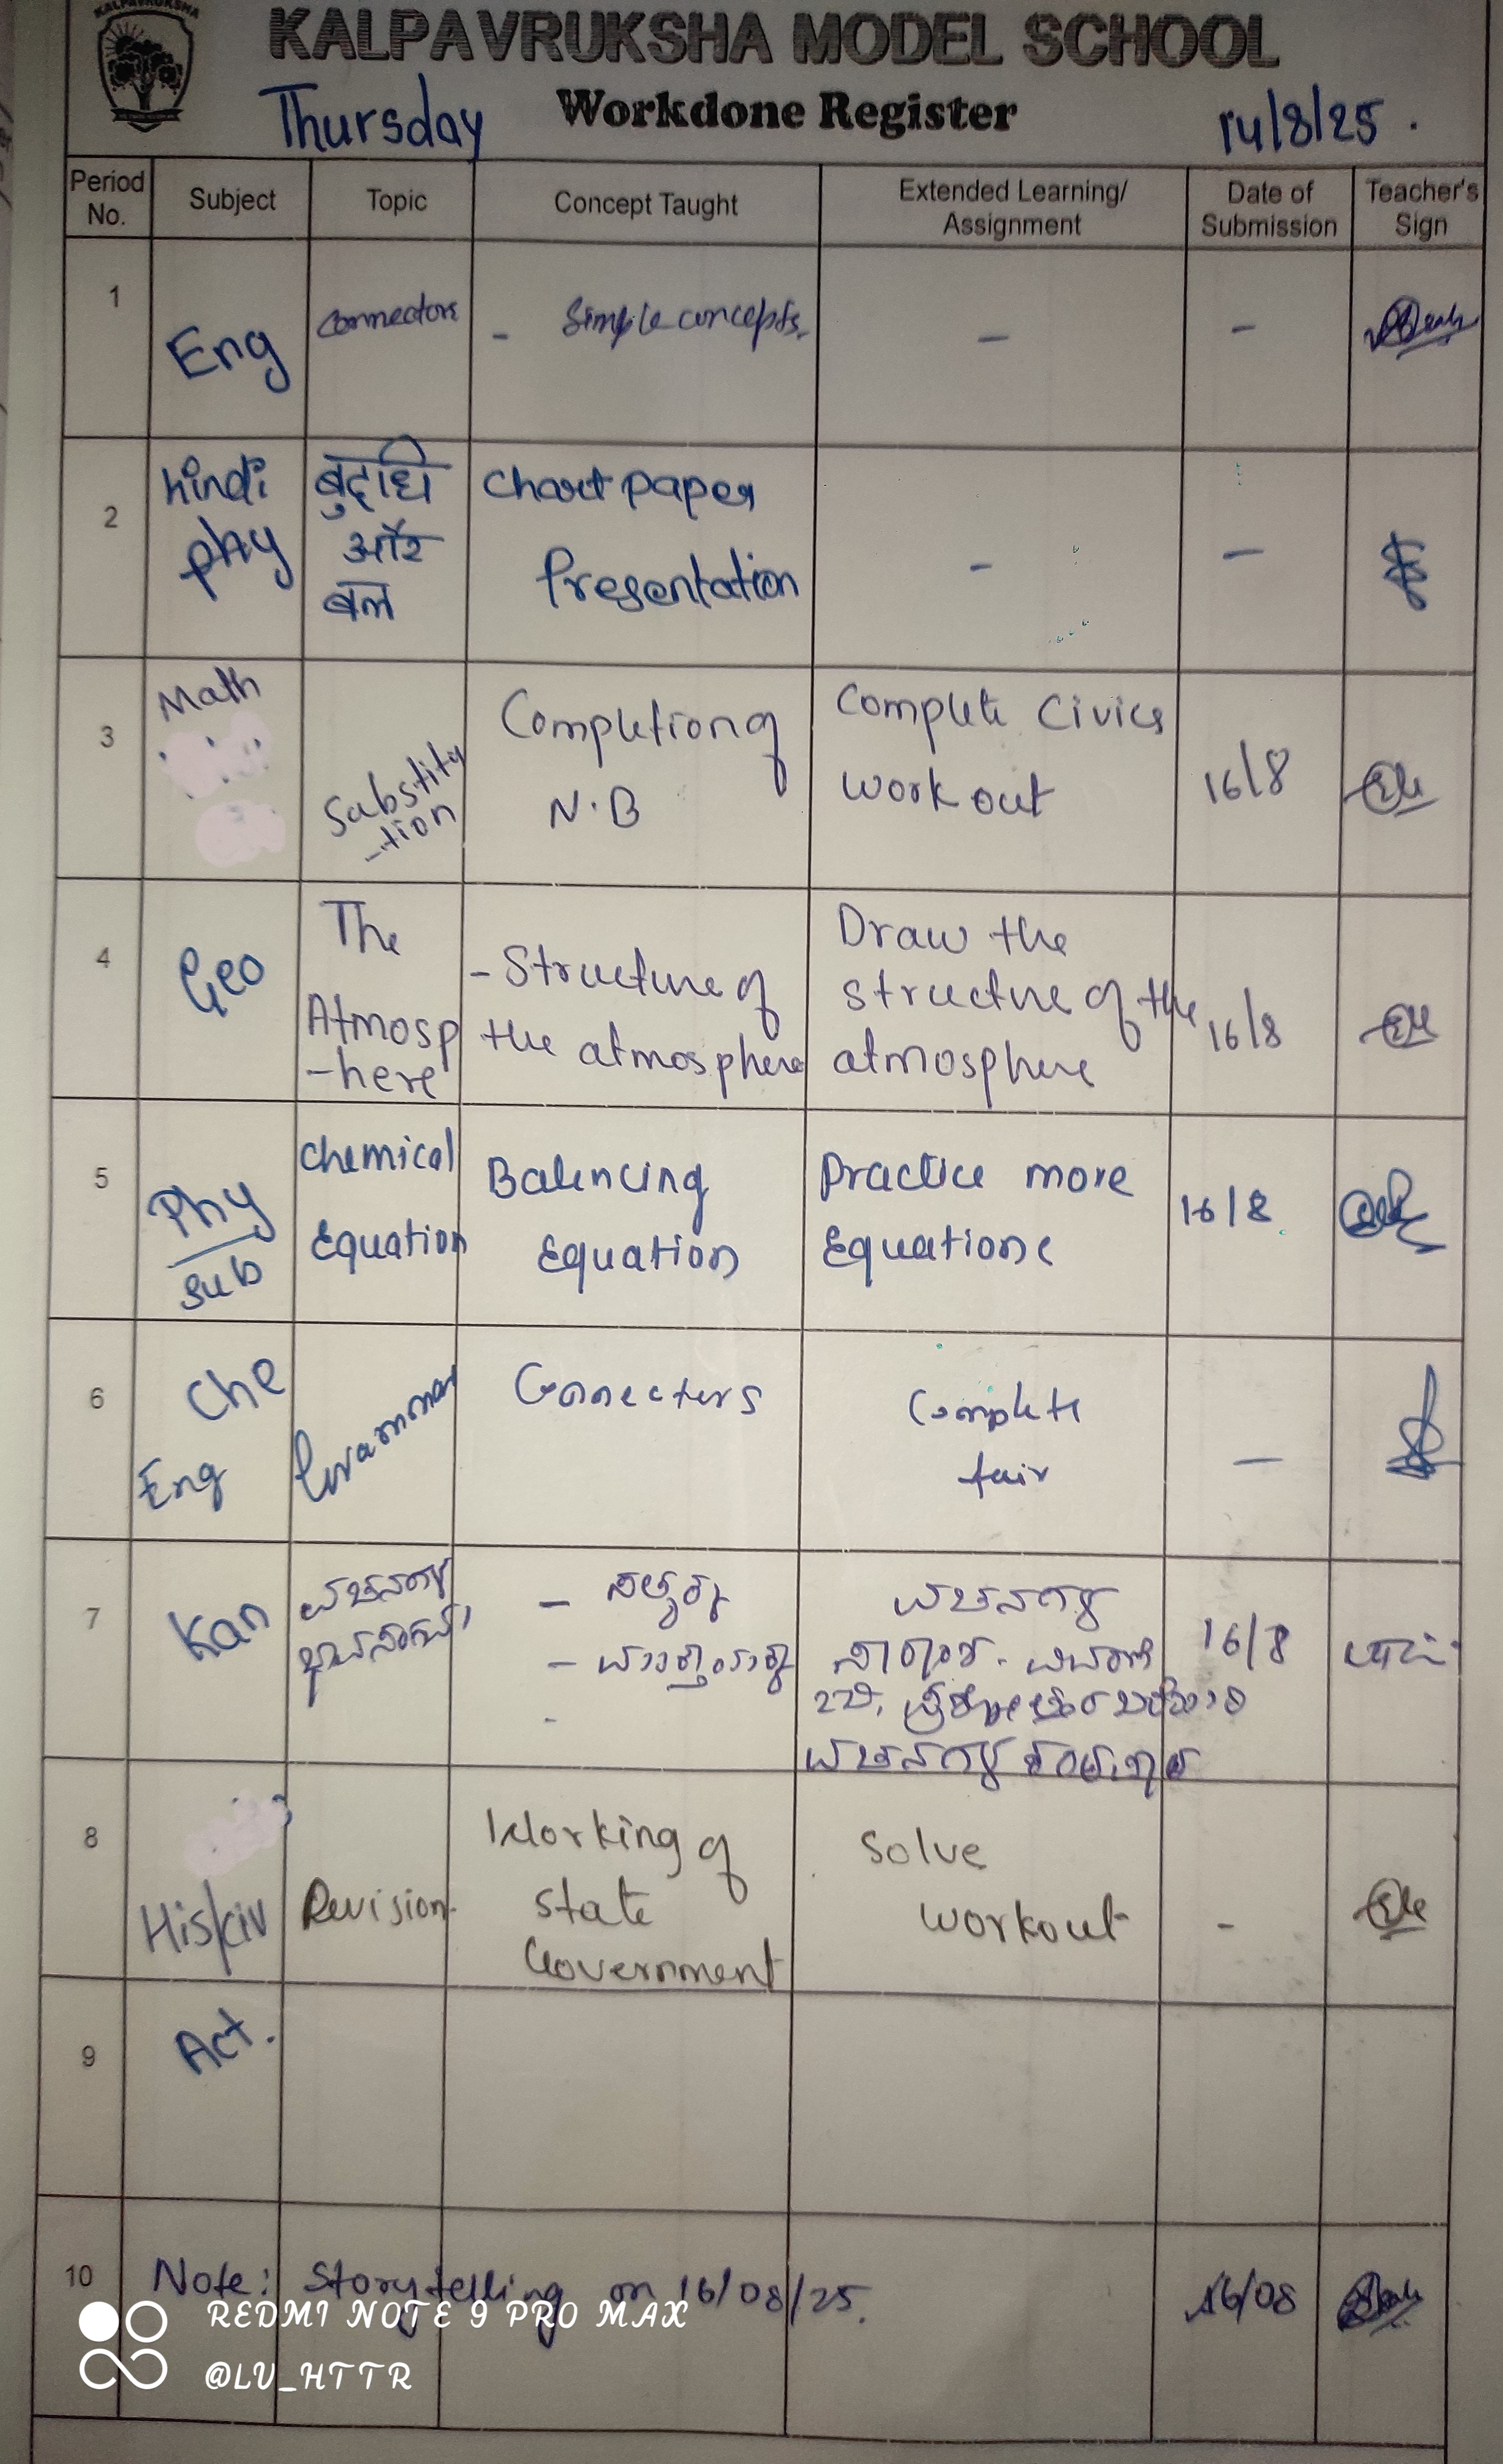 KALPAVRUKSHA
KALPAVRUKSHA MODEL SCHOOL
Thursday Workdone Register 14/8/25.
Period No. Subject Topic Concept Taught Extended Learning/ Assignment Date of Submission Teacher's Sign
1 Eng Connectors - Simple concepts. - -
2 hindi phy बुद्धि और बल Chart paper Presentation - -
3 Math Substitu -tion Completion of N.B Complete Civics work out 16/8
4 Geo The Atmosp -here - Structure of the atmosphere Draw the structure of the atmosphere 16/8
5 Phy sub Chemical Equation Balencing Equation Practice more Equations 16/8
6 Che Eng Grammar Connecters Complete fair -
7 Kan ವಚನಗಳ - - - ವಚನಗಳ ವಚನಗಳ 16/8
8 His/civ Revision Working of State Government Solve workout -
9 Act.
10 Note: Story telling on 16/08/25. 16/08
REDMI NOTE 9 PRO MAX
@LU_HTTR